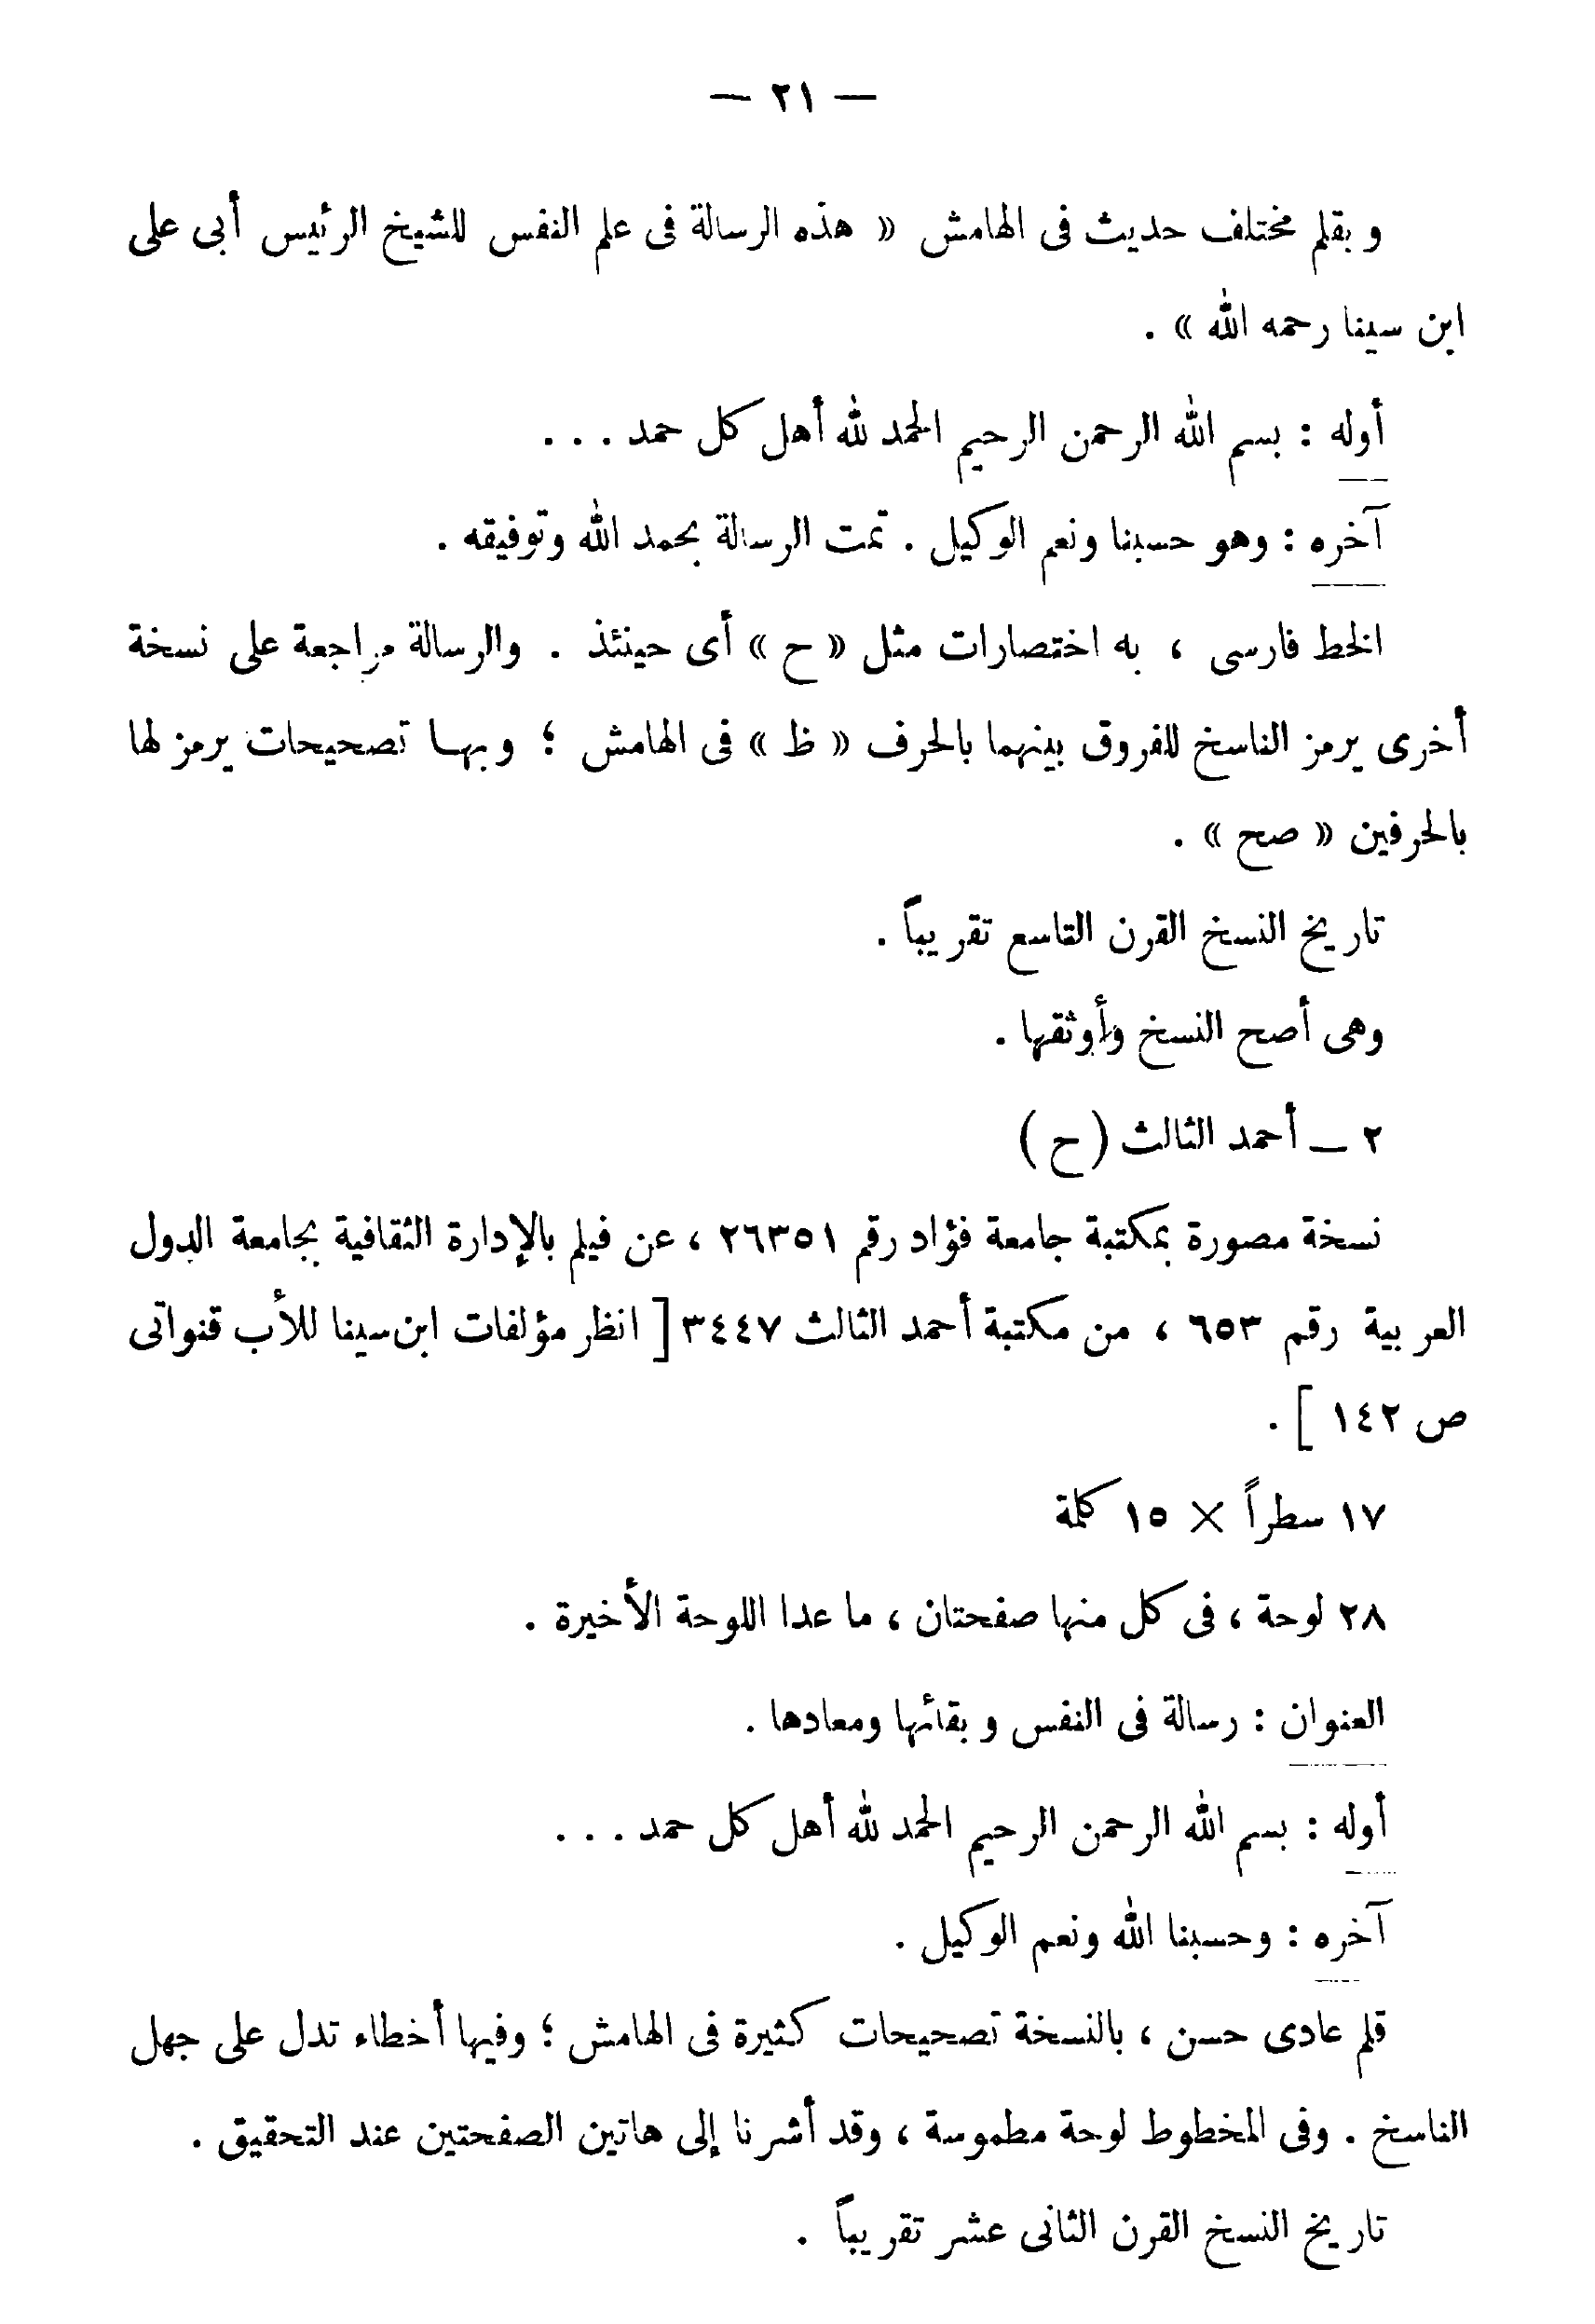 — ٢١ —
وبقلم مختلف حديث فى الهامش « هذه الرسالة فى علم النفس للشيخ الرئيس أبى على
ابن سينا رحمه الله » .
أوله : بسم الله الرحمن الرحيم الحمد لله أهل كل حمد . . .
آخره : وهو حسبنا ونعم الوكيل . تمت الرسالة بحمد الله وتوفيقه .
الخط فارسى ، به اختصارات مثل « ح » أى حينئذ . والرسالة مراجعة على نسخة
أخرى يرمز الناسخ للفروق بينهما بالحرف « ظ » فى الهامش ؛ وبهـا تصحيحات يرمز لها
بالحرفين « صح » .
تاريخ النسخ القرن التاسع تقريباً .
وهى أصح النسخ وأوثقها .
٢ — أحمد الثالث ( ح )
نسخة مصورة بمكتبة جامعة فؤاد رقم ٢٦٣٥١ ، عن فيلم بالإدارة الثقافية بجامعة الدول
العربية رقم ٦٥٣ ، من مكتبة أحمد الثالث ٣٤٤٧ [ انظر مؤلفات ابن سينا للأب قنواتى
ص ١٤٢ ] .
١٧ سطراً × ١٥ كلمة
٢٨ لوحة ، فى كل منها صفحتان ، ما عدا اللوحة الأخيرة .
العنوان : رسالة فى النفس وبقائها ومعادها .
أوله : بسم الله الرحمن الرحيم الحمد لله أهل كل حمد . . .
آخره : وحسبنا الله ونعم الوكيل .
قلم عادى حسن ، بالنسخة تصحيحات كثيرة فى الهامش ؛ وفيها أخطاء تدل على جهل
الناسخ . وفى المخطوط لوحة مطموسة ، وقد أشرنا إلى هاتين الصفحتين عند التحقيق .
تاريخ النسخ القرن الثانى عشر تقريباً .